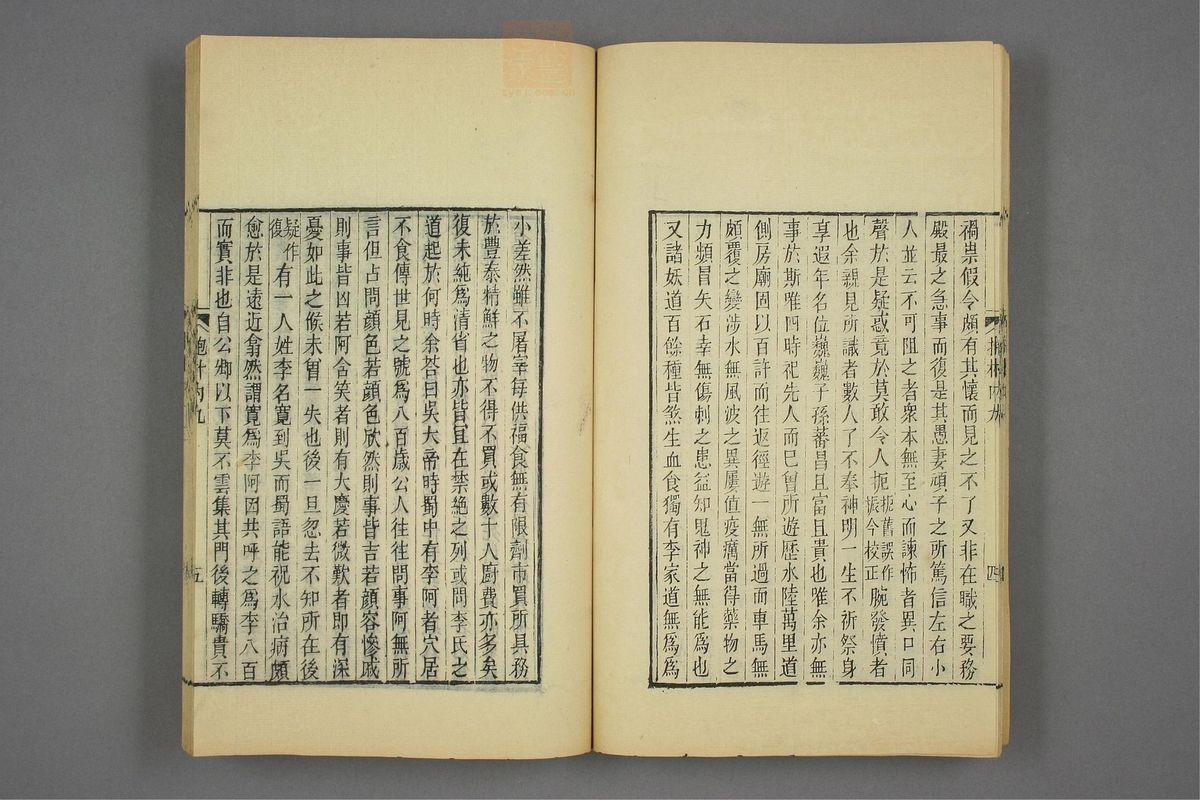 禍祟假令頗有其懷而見之不了又非在職之要務
殿最之急事而復是其愚妻頑子之所篤信左右小
人並云不可阻之者衆本無至心而諫怖者異口同
聲於是疑惑竟於莫敢令人扼扼舊誤作振今校正腕發憤者
也余親見所識者數人了不奉神明一生不祈祭身
享遐年名位巍巍子孫蕃昌且富且貴也唯余亦無
事於斯唯四時祀先人而已曾所遊歷水陸萬里道
側房廟固以百許而往返徑遊一無所過而車馬無
頗覆之變涉水無風波之異屢值疫癘當得藥物之
力頻冒矢石幸無傷刺之患益知鬼神之無能爲也
又諸妖道百餘種皆煞生血食獨有李家道無爲爲
四
小差然雖不屠宰每供福食無有限劑市買所具務
於豐泰精鮮之物不得不買或數十人廚費亦多矣
復未純爲清省也亦皆宜在禁絶之列或問李氏之
道起於何時余荅曰吳大帝時蜀中有李阿者穴居
不食傳世見之號爲八百歲公人往往問事阿無所
言但占問顏色若顏色欣然則事皆吉若顏容慘戚
則事皆凶若阿含笑者則有大慶若微歎者即有深
憂如此之候未曾一失也後一旦忽去不知所在後
疑作復有一人姓李名寬到吳而蜀語能祝水治病頗
愈於是遠近翕然謂寬爲李阿因共呼之爲李八百
而實非也自公卿以下莫不雲集其門後轉驕貴不
抱朴內九
五